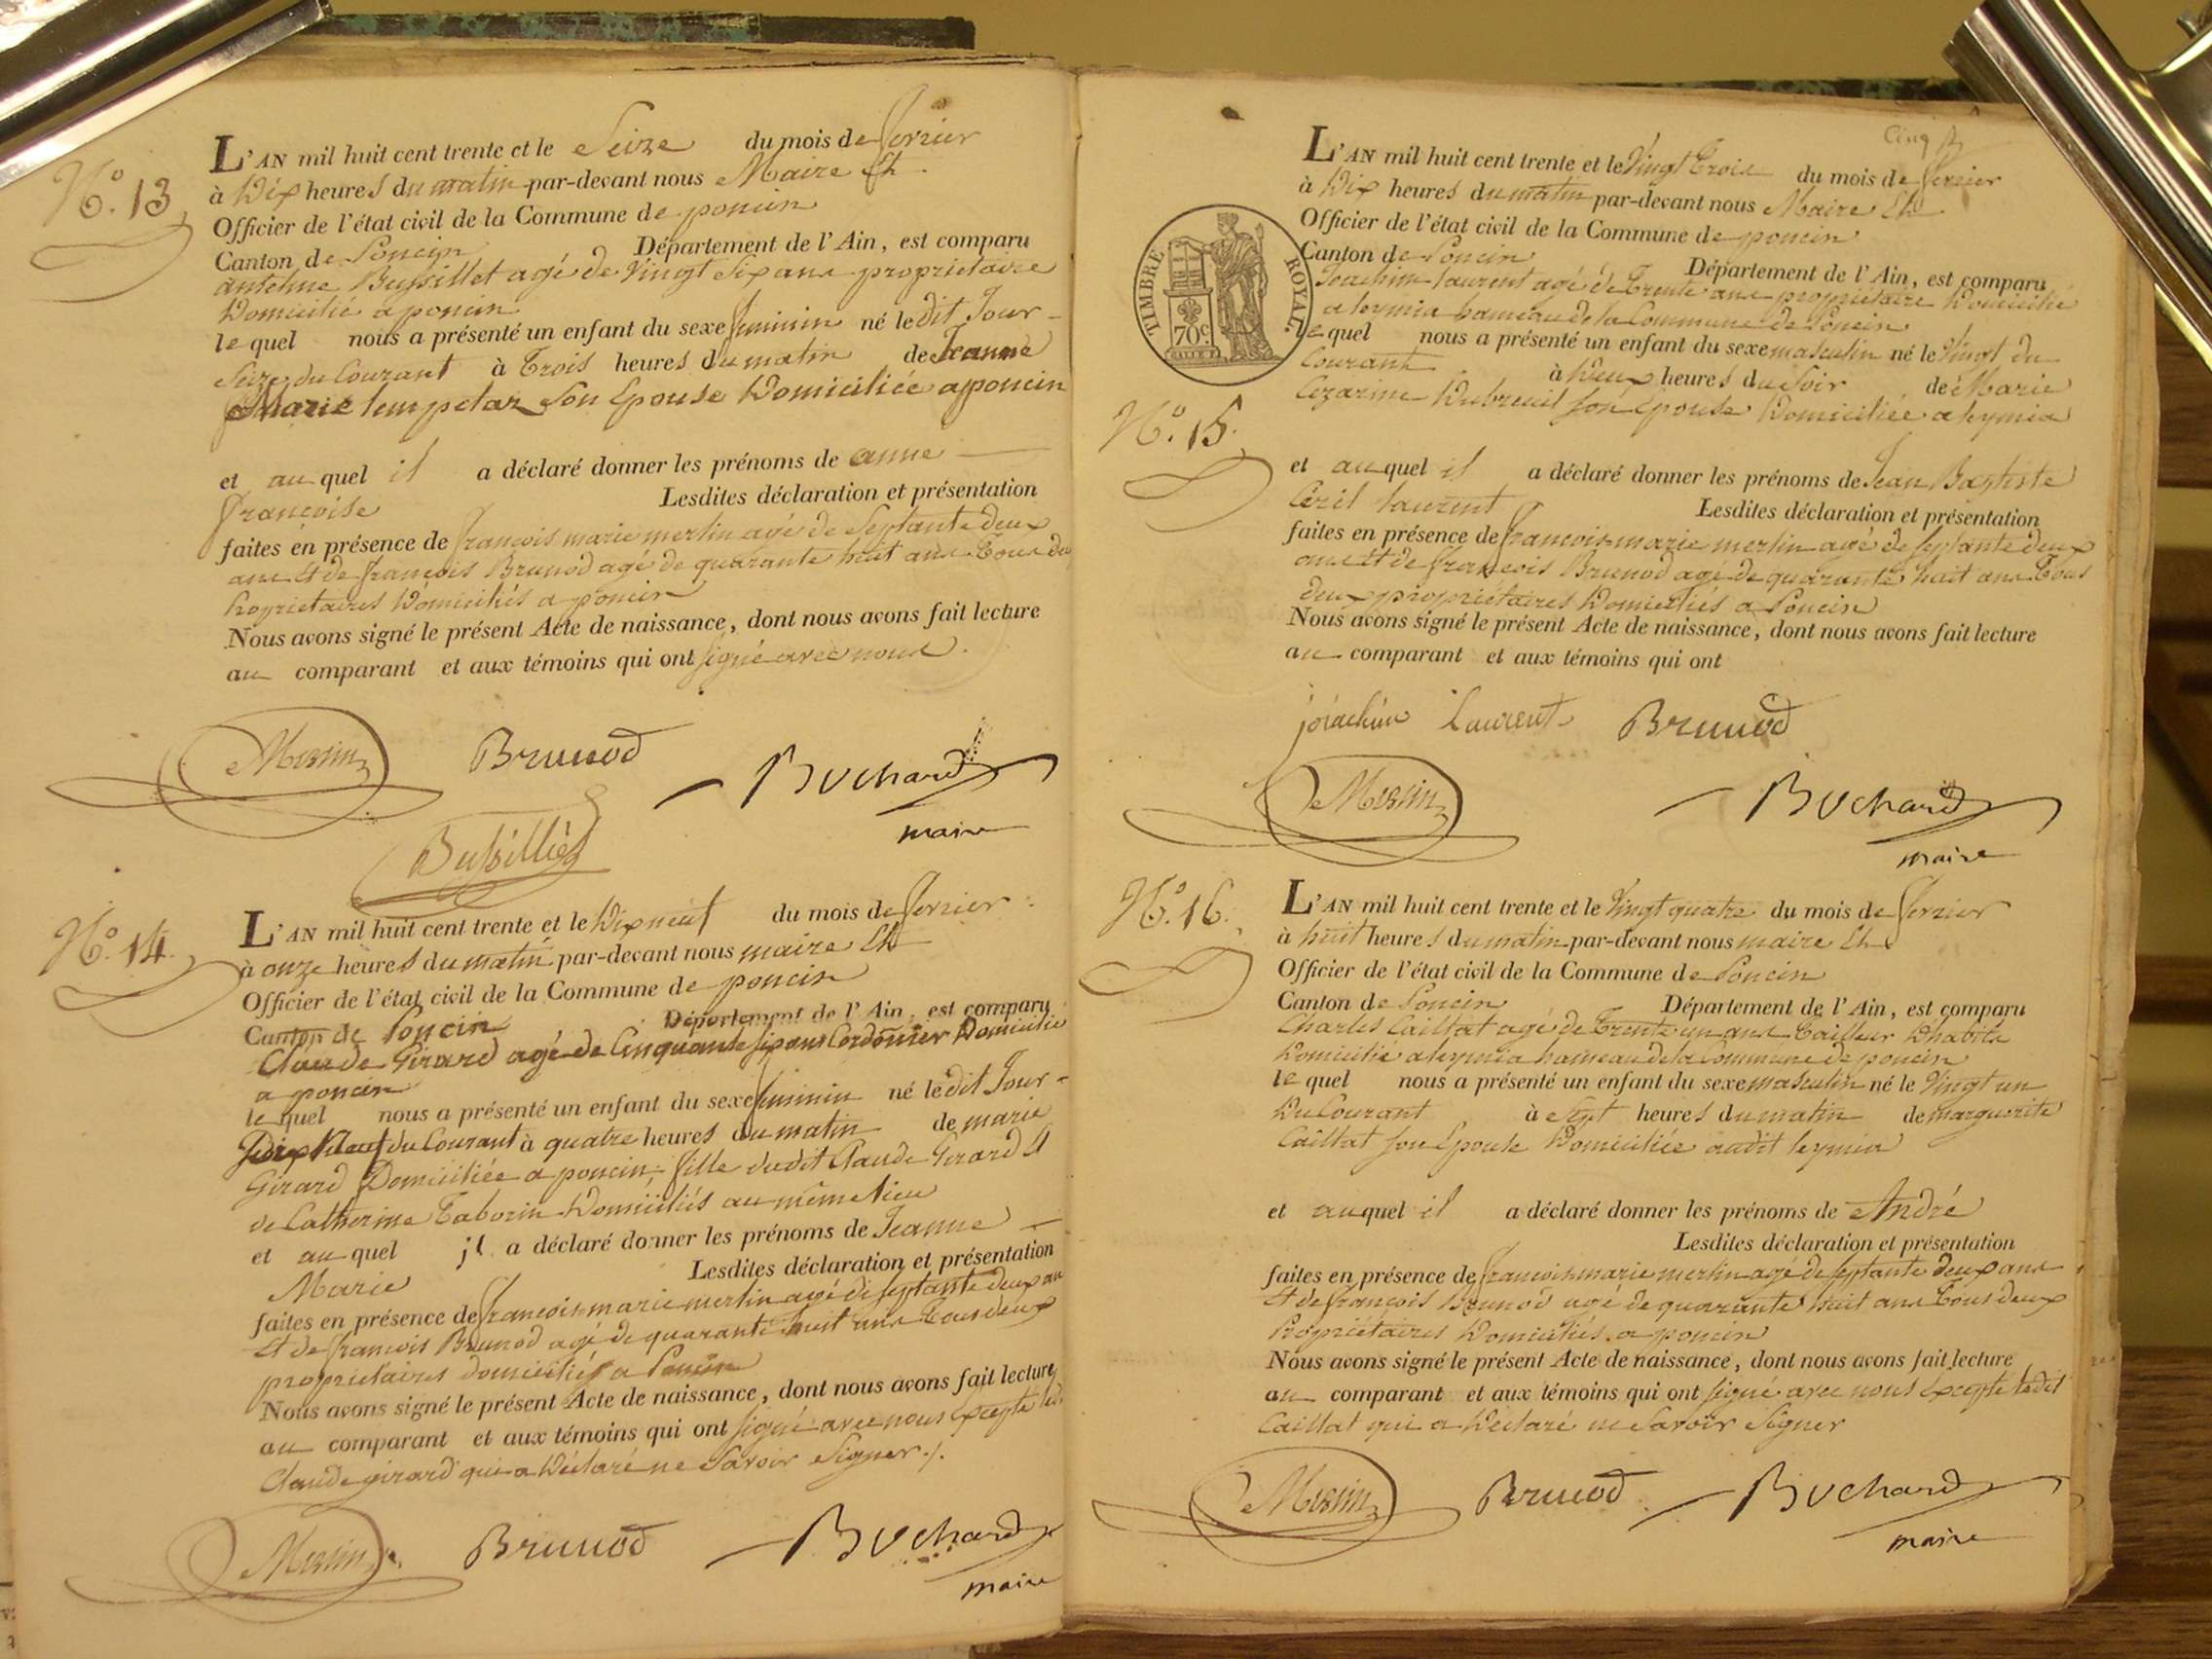 N.º 13
L'AN mil huit cent trente et le Seize du mois de fevrier
à Dix heures du matin par-devant nous Maire &
Officier de l'état civil de la Commune de poncin
Canton de Poncin Département de l'Ain, est comparu
antelme Bussillet agé de Vingt Six ans proprietaire
Domicilié a poncin
le quel nous a présenté un enfant du sexe feminin né ledit Jour
Seize du Courant à Trois heures du matin de Jeanne
Marie Son Epouse Domiciliée a poncin
et au quel il a déclaré donner les prénoms de anne
françoise Lesdites déclaration et présentation
faites en présence de françois marie merlin agé de Septante deux
ans et de françois Brunod agé de quarante huit ans Tous deux
Proprietaires Domiciliés a poncin
Nous avons signé le présent Acte de naissance, dont nous avons fait lecture
au comparant et aux témoins qui ont signé avec nous.
Merlin Brunod Buchard
maire
Bussillet
N.º 14.
L'AN mil huit cent trente et le Dix neuf du mois de fevrier
à onze heures du matin par-devant nous maire &
Officier de l'état civil de la Commune de poncin
Canton de Poncin Département de l'Ain, est comparu
Claude Girard agé de Cinquante six ans Cordonnier Domicilié
a poncin
le quel nous a présenté un enfant du sexe feminin né ledit Jour
Dix Neuf du Courant à quatre heures du matin de marie
Girard Domiciliée a poncin, fille dudit Claude Girard &
de Catherine Taborin Domiciliés au même lieu
et au quel il a déclaré donner les prénoms de Jeanne
Marie Lesdites déclaration et présentation
faites en présence de françois marie merlin agé de septante deux ans
et de françois Brunod agé de quarante huit ans Tous deux
proprietaires domiciliés a Poncin
Nous avons signé le présent Acte de naissance, dont nous avons fait lecture
au comparant et aux témoins qui ont signé avec nous Excepté ledit
Claude girard qui a Déclaré ne Savoir Signer ./.
Merlin Brunod Buchard
maire
Cinq
L'AN mil huit cent trente et le Vingt Trois du mois de fevrier
à Dix heures du matin par-devant nous Maire &
Officier de l'état civil de la Commune de poncin
Canton de Poncin Département de l'Ain, est comparu
Joachim laurent agé de Trente ans proprietaire Domicilié
a leymia hameau de la Commune de Poncin
le quel nous a présenté un enfant du sexe masculin né le Vingt du
Courant à Deux heures du Soir de Marie
Cezarine Dubreuil son Epouse Domiciliée a leymia
TIMBRE ROYAL.
70 c.
N.º 15.
et au quel il a déclaré donner les prénoms de Jean Baptiste
Ceril laurent Lesdites déclaration et présentation
faites en présence de françois marie merlin agé de septante deux
ans et de françois Brunod agé de quarante huit ans Tous
deux propriétaires Domiciliés a Poncin
Nous avons signé le présent Acte de naissance, dont nous avons fait lecture
au comparant et aux témoins qui ont
joiachim Laurent Brunod
Merlin Buchard
maire
N.º 16.
L'AN mil huit cent trente et le Vingt quatre du mois de fevrier
à huit heures du matin par-devant nous maire &
Officier de l'état civil de la Commune de Poncin
Canton de Poncin Département de l'Ain, est comparu
Charles Caillat agé de Trente un ans Tailleur D'habits
Domicilié a leymia hameau de la Commune de poncin
le quel nous a présenté un enfant du sexe masculin né le Vingt un
Du Courant à Sept heures du matin de marguerite
Caillat son Epouse Domiciliée audit leymia
et au quel il a déclaré donner les prénoms de André
Lesdites déclaration et présentation
faites en présence de françois marie merlin agé de septante deux ans
et de françois Brunod agé de quarante huit ans Tous deux
Propriétaires Domiciliés a poncin
Nous avons signé le présent Acte de naissance, dont nous avons fait lecture
au comparant et aux témoins qui ont signé avec nous Excepté ledit
Caillat qui a Déclaré ne Savoir Signer
Merlin Brunod Buchard
maire